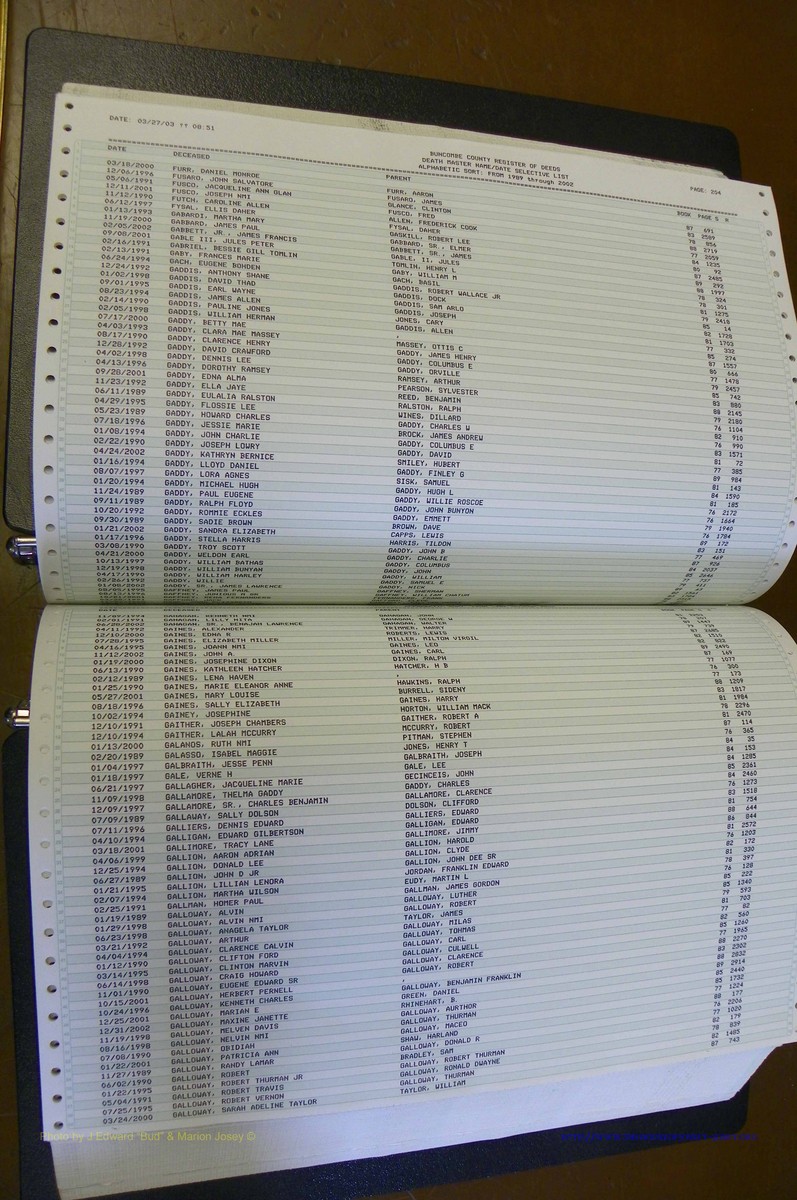 DATE: 03/27/03 ** 08:51
BUNCOMBE COUNTY REGISTER OF DEEDS
DEATH MASTER NAME/DATE SELECTIVE LIST
ALPHABETIC SORT: FROM 1989 through 2002
PAGE: 254
DATE DECEASED PARENT BOOK PAGE S R
03/18/2000 FURR, DANIEL MONROE FURR, AARON 87 691
12/06/1996 FUSARO, JOHN SALVATORE FUSARO, JAMES 83 2589
05/06/1991 FUSCO, JACQUELINE ANN GLAH GLANCE, CLINTON 78 856
12/11/2001 FUSCO, JOSEPH NMI FUSCO, FRED 88 2719
11/12/1990 FUTCH, CAROLINE ALLEN ALLEN, FREDERICK COOK 77 2059
06/12/1997 FYSAL, ELLIS DAHER FYSAL, DAHER 84 1235
01/13/1993 GABARDI, MARTHA MARY GASKILL, ROBERT LEE 80 92
11/19/2000 GABBARD, JAMES PAUL GABBARD, SR., ELMER 87 2485
02/05/2002 GABBETT, JR., JAMES FRANCIS GABBETT, SR., JAMES 89 292
09/08/2001 GABLE III, JULES PETER GABLE, II, JULES 88 1997
02/16/1991 GABRIEL, BESSIE GILL TOMLIN TOMLIN, HENRY L 78 324
02/13/1991 GABY, FRANCES MARIE GABY, WILLIAM M 78 301
06/24/1994 GACH, EUGENE BOHDEN GACH, BASIL 81 1275
12/24/1992 GADDIS, ANTHONY SHANE GADDIS, ROBERT WALLACE JR 79 2418
01/02/1998 GADDIS, DAVID THAD GADDIS, DOCK 85 14
09/01/1995 GADDIS, EARL WAYNE GADDIS, SAM ARLO 82 1728
08/23/1994 GADDIS, JAMES ALLEN GADDIS, JOSEPH 81 1703
02/14/1990 GADDIS, PAULINE JONES JONES, CARY 77 332
02/05/1998 GADDIS, WILLIAM HERMAN GADDIS, ALLEN 85 274
07/17/2000 GADDY, BETTY MAE , 87 1557
04/03/1993 GADDY, CLARA MAE MASSEY MASSEY, OTTIS C 80 666
08/17/1990 GADDY, CLARENCE HENRY GADDY, JAMES HENRY 77 1478
12/28/1992 GADDY, DAVID CRAWFORD GADDY, COLUMBUS E 79 2457
04/02/1998 GADDY, DENNIS LEE GADDY, ORVILLE 85 742
04/13/1996 GADDY, DOROTHY RAMSEY RAMSEY, ARTHUR 83 880
09/28/2001 GADDY, EDNA ALMA PEARSON, SYLVESTER 88 2145
11/23/1992 GADDY, ELLA JAYE REED, BENJAMIN 79 2180
06/11/1989 GADDY, EULALIA RALSTON RALSTON, RALPH 76 1104
04/29/1995 GADDY, FLOSSIE LEE WINES, DILLARD 82 910
05/23/1989 GADDY, HOWARD CHARLES GADDY, CHARLES W 76 990
07/18/1996 GADDY, JESSIE MARIE BROCK, JAMES ANDREW 83 1571
01/08/1994 GADDY, JOHN CHARLIE GADDY, COLUMBUS E 81 72
02/22/1990 GADDY, JOSEPH LOWRY GADDY, DAVID 77 385
04/24/2002 GADDY, KATHRYN BERNICE SMILEY, HUBERT 89 984
01/16/1994 GADDY, LLOYD DANIEL GADDY, FINLEY G 81 143
08/07/1997 GADDY, LORA AGNES SISK, SAMUEL 84 1590
01/20/1994 GADDY, MICHAEL HUGH GADDY, HUGH L 81 185
11/24/1989 GADDY, PAUL EUGENE GADDY, WILLIE ROSCOE 76 2172
09/11/1989 GADDY, RALPH FLOYD GADDY, JOHN BUNYON 76 1664
10/20/1992 GADDY, ROMMIE ECKLES GADDY, EMMETT 79 1940
09/30/1989 GADDY, SADIE BROWN BROWN, DAVE 76 1784
01/21/2002 GADDY, SANDRA ELIZABETH CAPPS, LEWIS 89 172
01/17/1996 GADDY, STELLA HARRIS HARRIS, TILDON 83 151
03/08/1990 GADDY, TROY SCOTT GADDY, JOHN B 77 469
04/21/2000 GADDY, WELDON EARL GADDY, COLUMBUS 87 926
10/13/1997 GADDY, WILLIAM DATHAS GADDY, JOHN 84 2037
12/19/1998 GADDY, WILLIAM BUNYAM GADDY, WILLIAM 85 2646
04/17/1990 GADDY, WILLIAM HARLEY GADDY, SAMUEL E 77 737
02/26/1992 GADDY, WILLIE GADDY, NICK 411
01/08/2002 GADDY, SR., JAMES LAWRENCE
GAFFNEY, JAMES PAUL GAFFNEY, SHERMAN
DATE DECEASED
11/09/1994 GAHAGAN, KENNETH NMI GAHAGAN, JOHN
02/01/1991 GAHAGAN, LILLY MITA GAHAGAN, GEORGE W
06/28/2002 GAHAGAN, SR., BENAJAH LAWRENCE GAHAGAN, WALTER
04/11/1992 GAINES, ALEXANDER TRIMMER, HARRY
12/10/2000 GAINES, EDNA R ROBERTS, LEWIS 87 2685
07/25/1995 GAINES, ELIZABETH MILLER MILLER, MILTON VIRGIL 82 1510
04/16/1995 GAINES, JOANN NMI GAINES, LEO 82 822
11/12/2002 GAINES, JOHN A. GAINES, CARL 89 2490
01/19/2000 GAINES, JOSEPHINE DIXON DIXON, RALPH 87 169
06/13/1990 GAINES, KATHLEEN HATCHER HATCHER, H B 77 1077
02/12/1989 GAINES, LENA HAVEN , 76 300
01/25/1990 GAINES, MARIE ELEANOR ANNE HAWKINS, RALPH 77 173
05/27/2001 GAINES, MARY LOUISE BURRELL, SIDENY 88 1209
08/18/1996 GAINES, SALLY ELIZABETH GAINES, HARRY 83 1817
10/02/1994 GAINEY, JOSEPHINE HORTON, WILLIAM MACK 81 1984
12/10/1991 GAITHER, JOSEPH CHAMBERS GAITHER, ROBERT A 78 2296
12/10/1994 GAITHER, LALAH MCCURRY MCCURRY, ROBERT 81 2470
01/13/2000 GALANOS, RUTH NMI PITMAN, STEPHEN 87 114
02/20/1989 GALASSO, ISABEL MAGGIE JONES, HENRY T 76 365
01/04/1997 GALBRAITH, JESSE PENN GALBRAITH, JOSEPH 84 35
01/18/1997 GALE, VERNE H GALE, LEE 84 153
06/21/1997 GALLAGHER, JACQUELINE MARIE GECINCEIS, JOHN 84 1285
11/09/1998 GALLAMORE, THELMA GADDY GADDY, CHARLES 85 2361
12/09/1997 GALLAMORE, SR., CHARLES BENJAMIN GALLAMORE, CLARENCE 84 2460
07/09/1989 GALLAWAY, SALLY DOLSON DOLSON, CLIFFORD 76 1273
07/11/1996 GALLIERS, DENNIS EDWARD GALLIERS, EDWARD 83 1518
04/10/1994 GALLIGAN, EDWARD GILBERTSON GALLIGAN, EDWARD 81 754
03/18/2001 GALLIMORE, TRACY LANE GALLIMORE, JIMMY 88 644
04/06/1999 GALLION, AARON ADRIAN GALLION, HAROLD 86 844
12/25/1994 GALLION, DONALD LEE GALLION, CLYDE 81 2572
06/27/1989 GALLION, JOHN D JR GALLION, JOHN DEE SR 76 1203
01/21/1995 GALLION, LILLIAN LENORA JORDAN, FRANKLIN EDWARD 82 172
02/07/1994 GALLION, MARTHA WILSON EUDY, MARTIN L 81 330
02/25/1991 GALLMAN, HOMER PAUL GALLMAN, JAMES GORDON 78 397
01/19/1989 GALLOWAY, ALVIN GALLOWAY, LUTHER 76 128
01/29/1998 GALLOWAY, ALVIN NMI GALLOWAY, ROBERT 85 222
06/23/1998 GALLOWAY, ANAGELA TAYLOR TAYLOR, JAMES 85 1340
03/21/1992 GALLOWAY, ARTHUR GALLOWAY, MILAS 79 593
04/04/1994 GALLOWAY, CLARENCE CALVIN GALLOWAY, TOHMAS 81 703
01/12/1990 GALLOWAY, CLIFTON FORD GALLOWAY, CARL 77 82
03/14/1995 GALLOWAY, CLINTON MARVIN GALLOWAY, CULWELL 82 560
06/14/1998 GALLOWAY, CRAIG HOWARD GALLOWAY, CLARENCE 85 1260
11/01/1990 GALLOWAY, EUGENE EDWARD SR GALLOWAY, ROBERT 77 1965
10/15/2001 GALLOWAY, HERBERT PERNELL , 88 2270
10/24/1996 GALLOWAY, KENNETH CHARLES GALLOWAY, BENJAMIN FRANKLIN 83 2302
12/25/2001 GALLOWAY, MARIAN E GREEN, DANIEL 88 2832
12/31/2002 GALLOWAY, MAXINE JANETTE RHINEHART, B. 89 2914
11/19/1998 GALLOWAY, MELVEN DAVIS GALLOWAY, AURTHOR 85 2440
08/16/1998 GALLOWAY, NELVIN NMI GALLOWAY, THURMAN 85 1732
07/08/1990 GALLOWAY, OBIDIAH GALLOWAY, MACEO 77 1224
01/22/2001 GALLOWAY, PATRICIA ANN SHAW, HARLAND 88 177
11/27/1989 GALLOWAY, RANDY LAMAR GALLOWAY, DONALD R 76 2006
06/02/1990 GALLOWAY, ROBERT BRADLEY, SAM 77 1020
01/22/1995 GALLOWAY, ROBERT THURMAN JR GALLOWAY, ROBERT THURMAN 82 179
05/04/1991 GALLOWAY, ROBERT TRAVIS GALLOWAY, RONALD DWAYNE 78 839
07/25/1995 GALLOWAY, ROBERT VERNON GALLOWAY, THURMAN 82 1485
03/24/2000 GALLOWAY, SARAH ADELINE TAYLOR TAYLOR, WILLIAM 87 743
Photo by J Edward "Bud" & Marion Josey ©